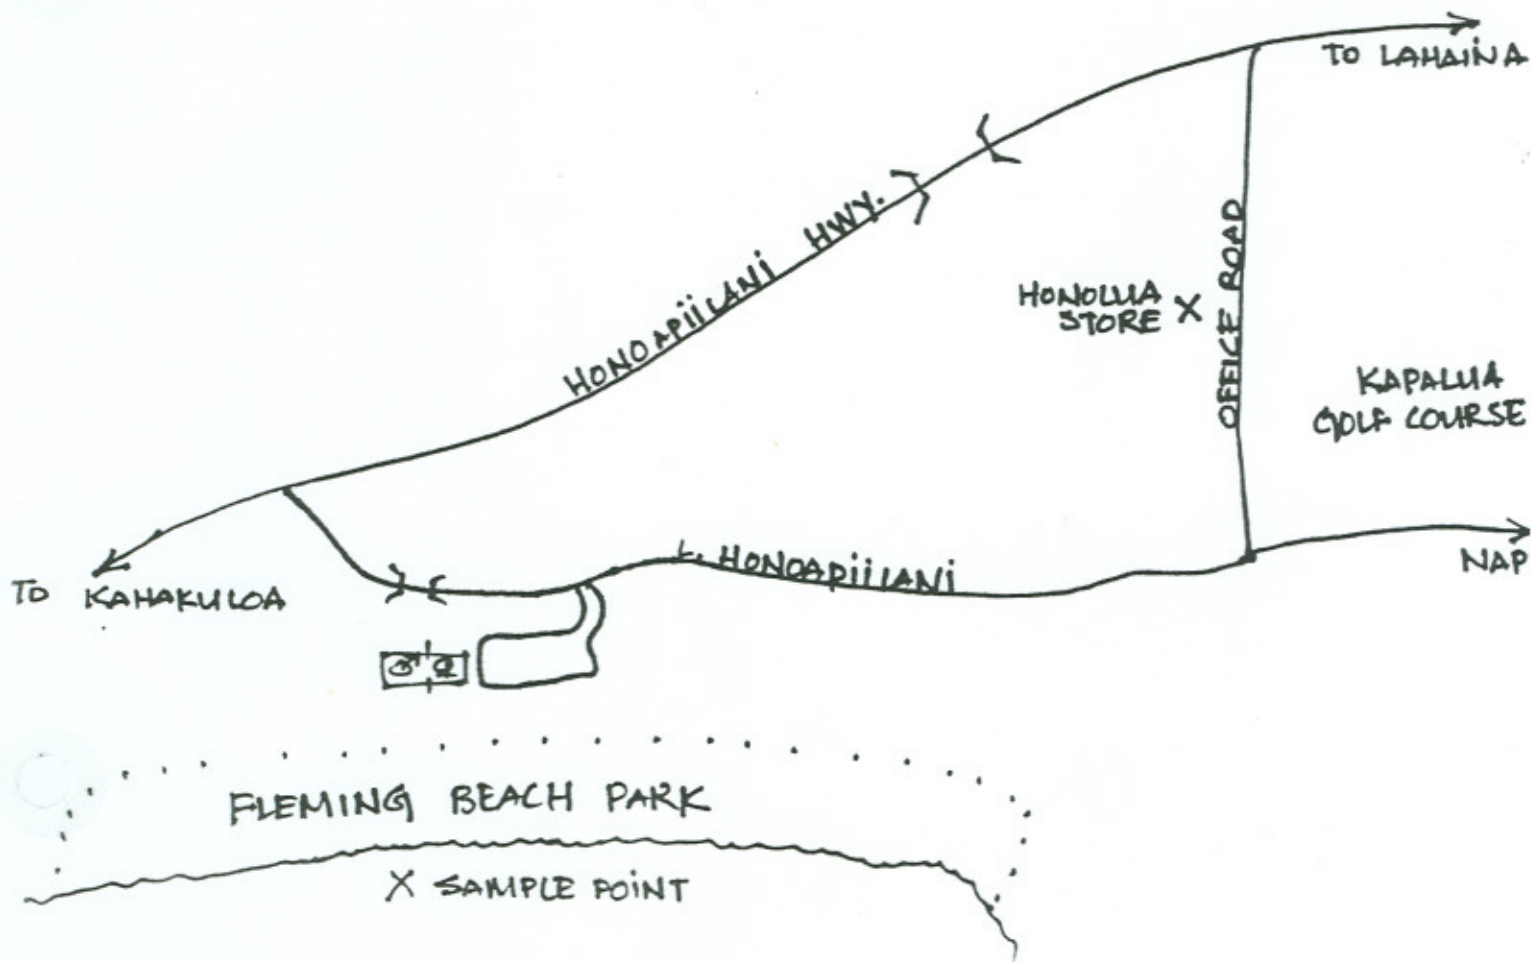 TO LAHAINA
HONOAPIILANI HWY.
HONOLUA
STORE X
OFFICE ROAD
KAPALUA
GOLF COURSE
L. HONOAPIILANI
NAP
TO KAHAKULOA
♂ ♀
FLEMING BEACH PARK
X SAMPLE POINT